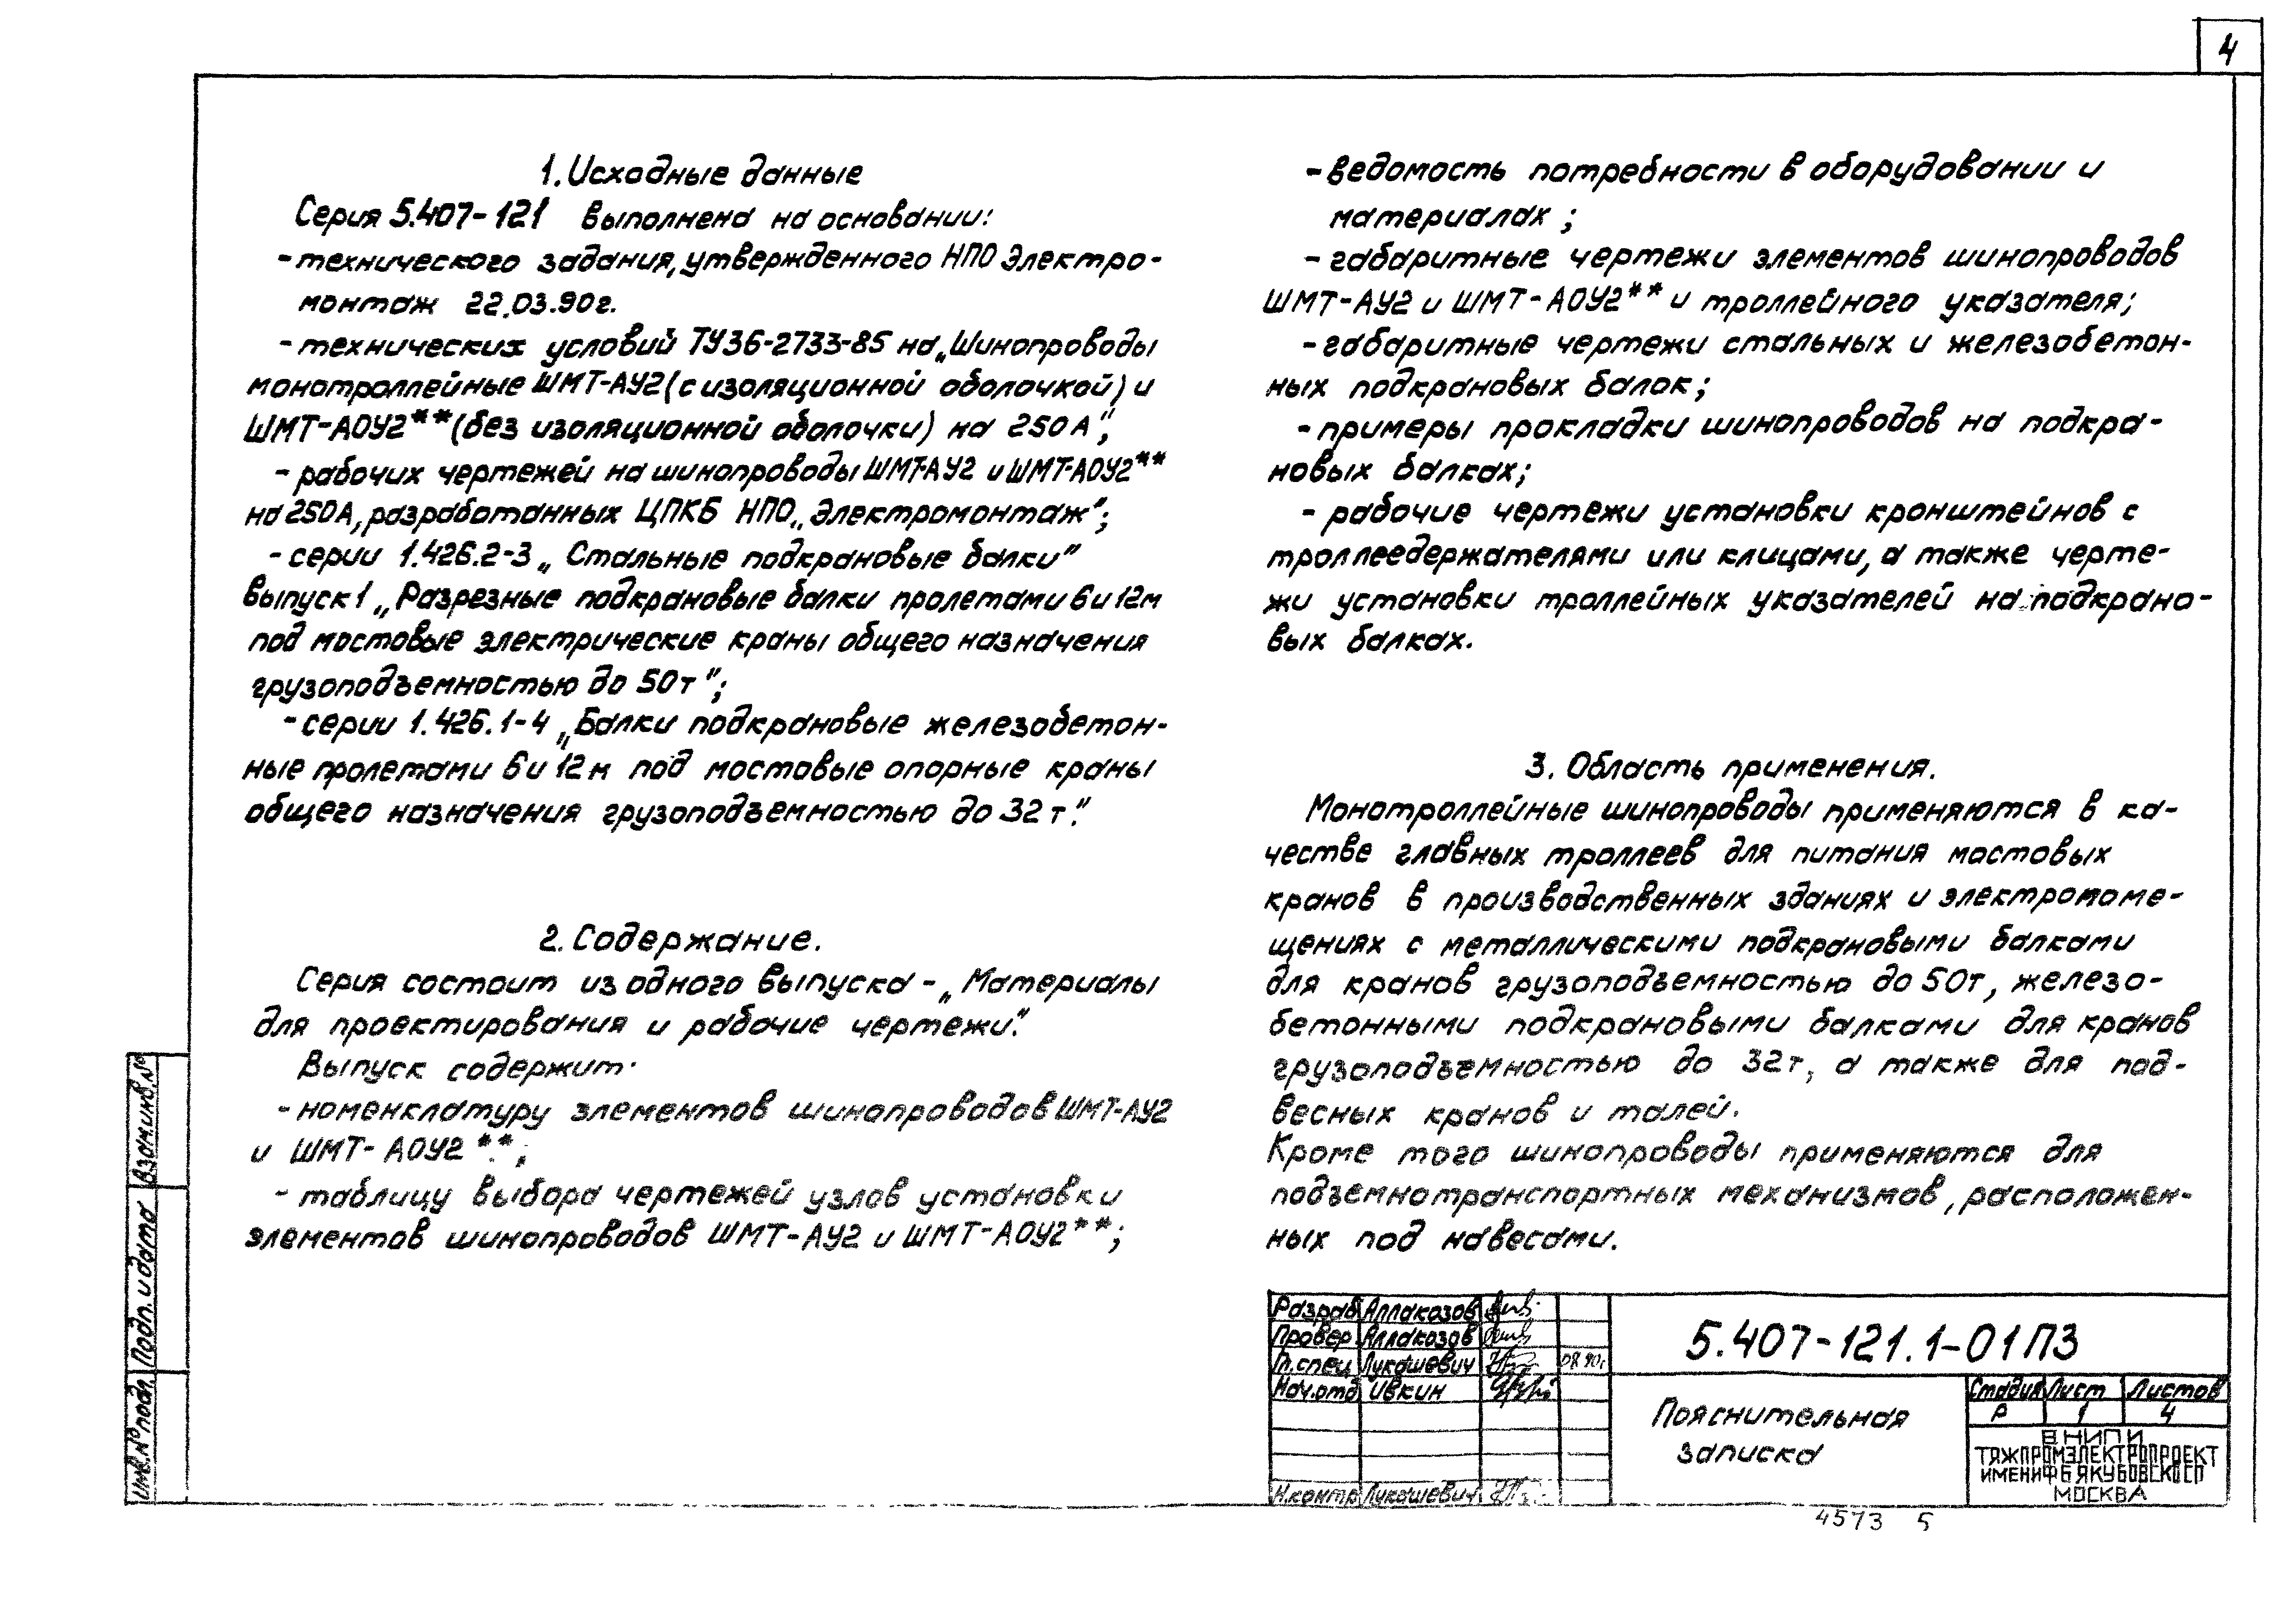 4
1. Исходные данные
Серия 5.407-121 выполнена на основании:
- технического задания, утвержденного НПО Электро-
монтаж 22.03.90г.
- технических условий ТУ36-2733-85 на „Шинопроводы
монотроллейные ШМТ-АУ2 (с изоляционной оболочкой) и
ШМТ-АОУ2** (без изоляционной оболочки) на 250А",
- рабочих чертежей на шинопроводы ШМТ-АУ2 и ШМТ-АОУ2**
на 250А, разработанных ЦПКБ НПО „Электромонтаж";
- серии 1.426.2-3 „Стальные подкрановые балки"
выпуск 1 „Разрезные подкрановые балки пролетами 6 и 12м
под мостовые электрические краны общего назначения
грузоподъемностью до 50т";
- серии 1.426.1-4 „Балки подкрановые железобетон-
ные пролетами 6 и 12м под мостовые опорные краны
общего назначения грузоподъемностью до 32т."
2. Содержание.
Серия состоит из одного выпуска - „Материалы
для проектирования и рабочие чертежи."
Выпуск содержит:
- номенклатуру элементов шинопроводов ШМТ-АУ2
и ШМТ-АОУ2**;
- таблицу выбора чертежей узлов установки
элементов шинопроводов ШМТ-АУ2 и ШМТ-АОУ2**;
- ведомость потребности в оборудовании и
материалах;
- габаритные чертежи элементов шинопроводов
ШМТ-АУ2 и ШМТ-АОУ2** и троллейного указателя;
- габаритные чертежи стальных и железобетон-
ных подкрановых балок;
- примеры прокладки шинопроводов на подкра-
новых балках;
- рабочие чертежи установки кронштейнов с
троллеедержателями или клицами, а также черте-
жи установки троллейных указателей на подкрано-
вых балках.
3. Область применения.
Монотроллейные шинопроводы применяются в ка-
честве главных троллеев для питания мостовых
кранов в производственных зданиях и электропоме-
щениях с металлическими подкрановыми балками
для кранов грузоподъемностью до 50т, железо-
бетонными подкрановыми балками для кранов
грузоподъемностью до 32т, а также для под-
весных кранов и талей.
Кроме того шинопроводы применяются для
подъемнотранспортных механизмов, расположен-
ных под навесами.
Разраб Аллакозов
Провер. Аллакозов
Гл.спец Лукашевич 08.90г
Нач.отд Ивкин
Н.контр Лукашевич
5.407-121.1-01ПЗ
Пояснительная
записка
Стадия Лист Листов
Р 1 4
ВНИПИ
ТЯЖПРОМЭЛЕКТРОПРОЕКТ
ИМЕНИ Ф Б ЯКУБОВСКОГО
МОСКВА
Взам.инв.№
Подп. и дата
Инв.№ подл.
4573 5